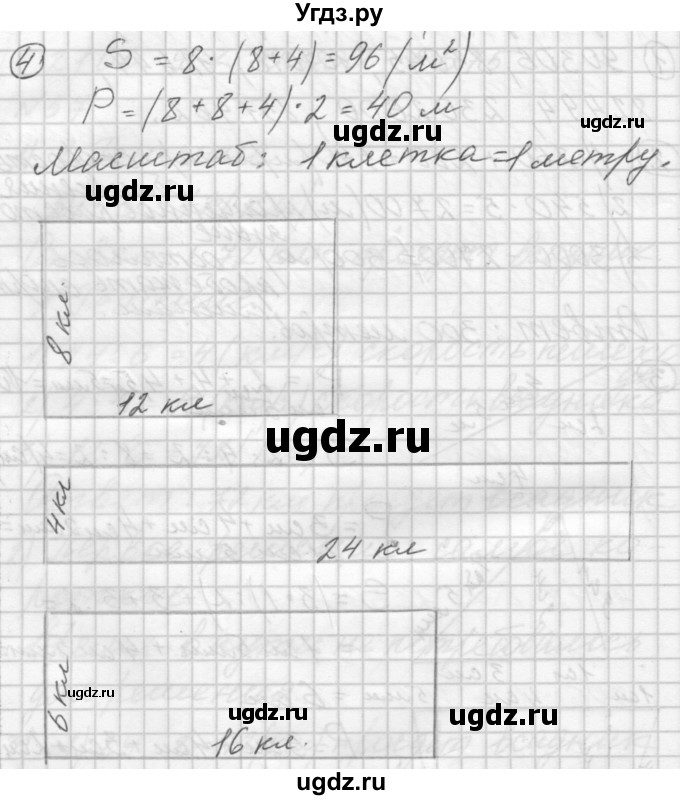 Угдз.ру
④ S = 8 · (8+4) = 96 (м²)
P = (8+8+4)·2 = 40 м
ugdz.ru
ugdz.ru
Масштаб: 1 клетка = 1 метру.
ugdz.ru
8 кл.
12 кл
ugdz.ru
4 кл
24 кл
6 кл
ugdz.ru
ugdz.ru
ugdz.ru
16 кл.
ugdz.ru